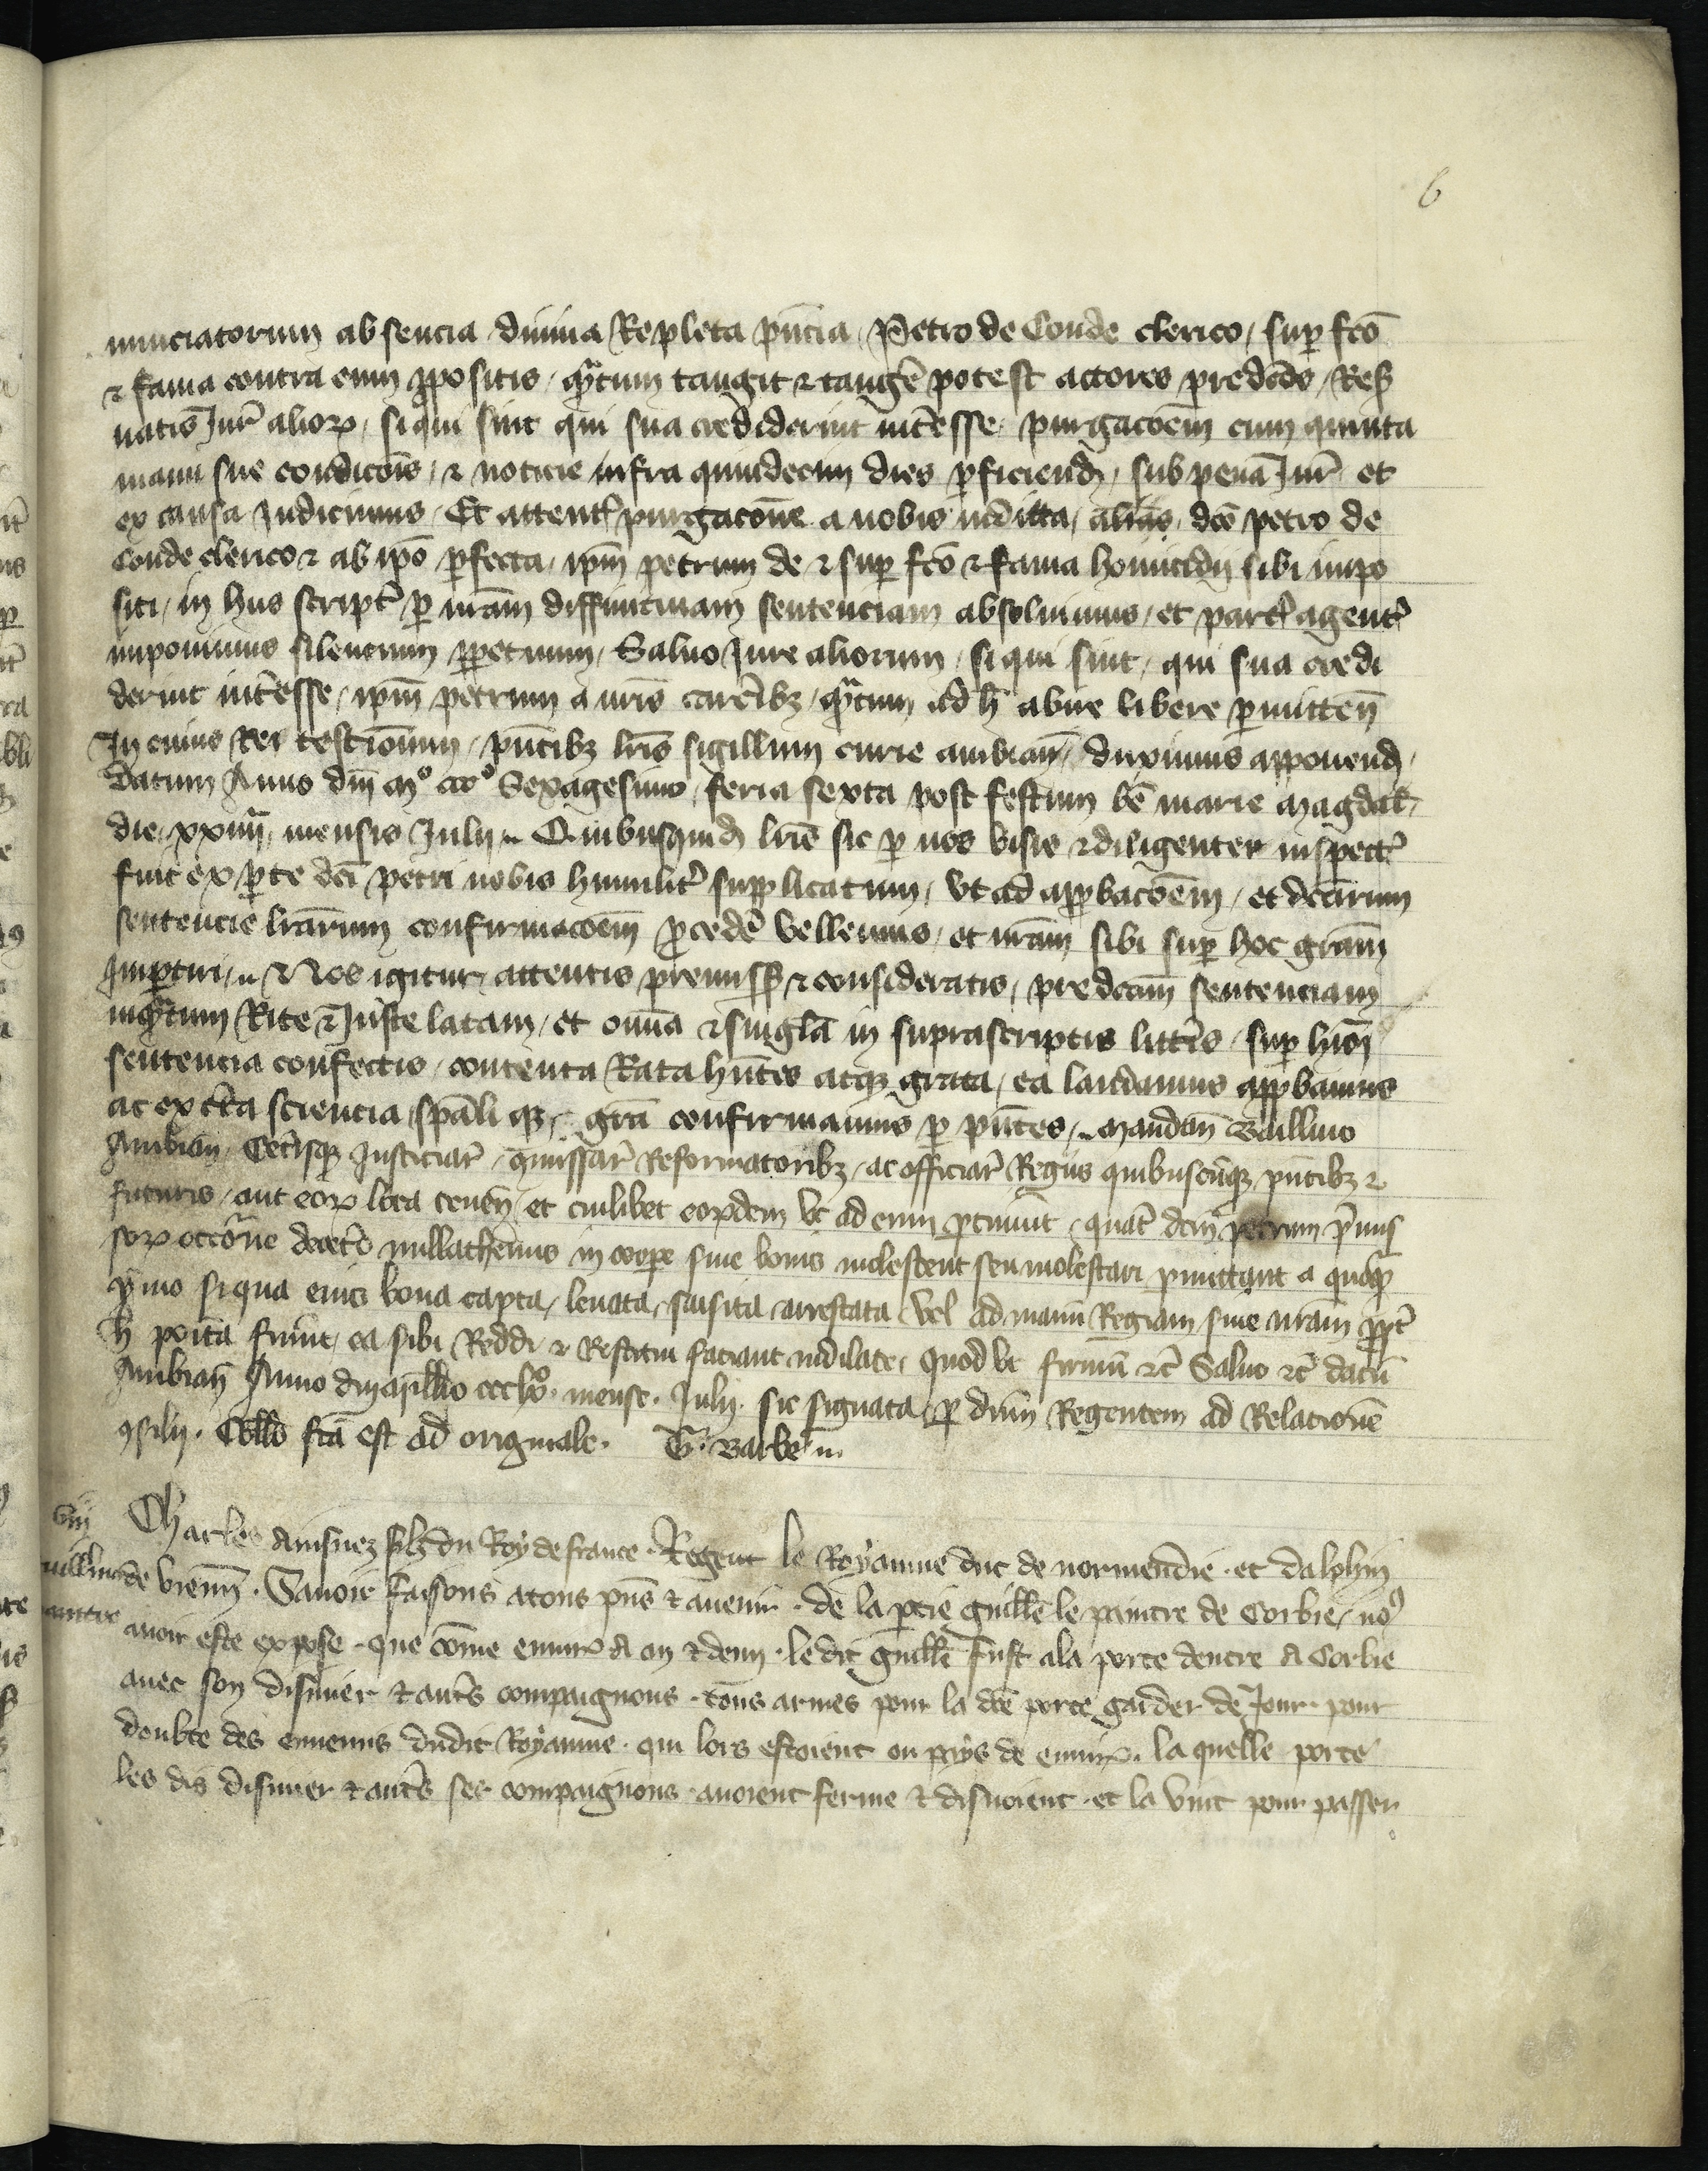 6
nunciatorum absencia divina Repleta pñcia / Petro de Conde clerico / sup fcõ
& fama contra eum ppositis / qᵃtum tangit & tangẽ potest actores predcõs / Resẽ
vatis Jurẽ alioꝝ / si qui sint qui sua crediderint int̃esse / purgacõem cum quinta
manu sue condicõis / & noticie infra quindecim dies pficiend̃ / sub pena Jur̃ et
ex causa Indicimus / Et attent̃ purgacõne a nobis indicta / alias / dcõ petro de
Conde clerico & ab ipõ pfecta / ipm̃ petrum de & sup fcõ & fama homicidij sibi impo
siti / in hiis script̃ p nr̃am diffinitivam sentenciam absolvimus / et part̃ agent̃
imponimus silencium ppetuum / Salvo Jure aliorum / si qui sint / qui sua credi
derint int̃esse / ipm̃ petrum a nr̃is carc̃ibꝫ / qᵃtum ad h̃ abire libere pmitteñ
In cuius Rei testiõnium / pñtibꝫ lr̃is sigillum curie ambiañ / duximus apponend̃ /
datum Anno dñi mº cccº Sexagesimo / feria sexta post festum bẽ marie magdal̃ /
die / xxiiijᵃ / mensis Julij .. Quibusquid̃ lr̃is sic p nos visis & diligenter inspect̃
fuit ex pte dc̃i petri nobis humilit̃ supplicatum / vt ad appbacõem / et dc̃arum
sentencie lr̃arum confirmacõem pcedẽ vellemus / et nr̃am sibi sup hoc gr̃am
Impturi / .. & Nos igitur attentis premiss̃ & consideratis / predcãm sentenciam
inqᵃtum Rite & Juste latam / et om̃ia & singl̃a in suprascriptis litt̃is / sup hiõi
sentencia confectis / contenta Rata hñtes atqꝫ grata / ea laudamus appbamus
ac ex c̃ta sciencia / spãli qꝫ / gr̃a confirmamus p pñtes / .. mandañ Baillivo
Ambiañ / Cet̃isqꝫ Justiciar̃ / Comissar̃ Reformatoribꝫ / ac officiar̃ Regiis quibuscũqꝫ / pñtibꝫ &
futuris / aut eoꝝ loca teneñ / et cuilibet eoꝝdem vt ad eum ptinuit / quat̃ dcm̃ petrum p̃miss
soꝝ occõne decet̃o nullathenus in corpe sive bonis molestent seu molestari pmittant a quoqᵃ
qᵃ ymo si qua eius bona capta / levata / saisita / arrestata vel ad manũ Regiam sive nr̃am ppt̃
h̃ poita fuint / ea sibi Reddi & Restitui faciant indilate / Quod vt firmũ &c̃ Salvo &c̃ datũ
Ambiañ Anno dñi millio ccclxº . mense . Julij . sic signata / p dñm Regentem ad Relacionẽ
ꝯsilij . Coll̃o fc̃a est ad originale . G. Barbe ..
viij
Charles Ainsnez filz du Roy de france . Regent le Royaume duc de normendie . et dalphin
de vienñ . Savoir Faisons a tous pñs & avenir . de la ptie guill̃e le paintre de Corbie / noꝰ
avoir este expose . que cõme enuirõ A un & demi . ledit guill̃e fust ala porte dencre A Corbie
avec son disinier & aut̃s compaignons . tous armes pour la dc̃e porte garder de Jour pour
doubte des ennemis dudit Royaume . qui lors estoient ou pays de enuirõ . la quelle porte
les dis disinier & aut̃s ses compaignons . avoient ferme & disnoient . et la vint pour passer